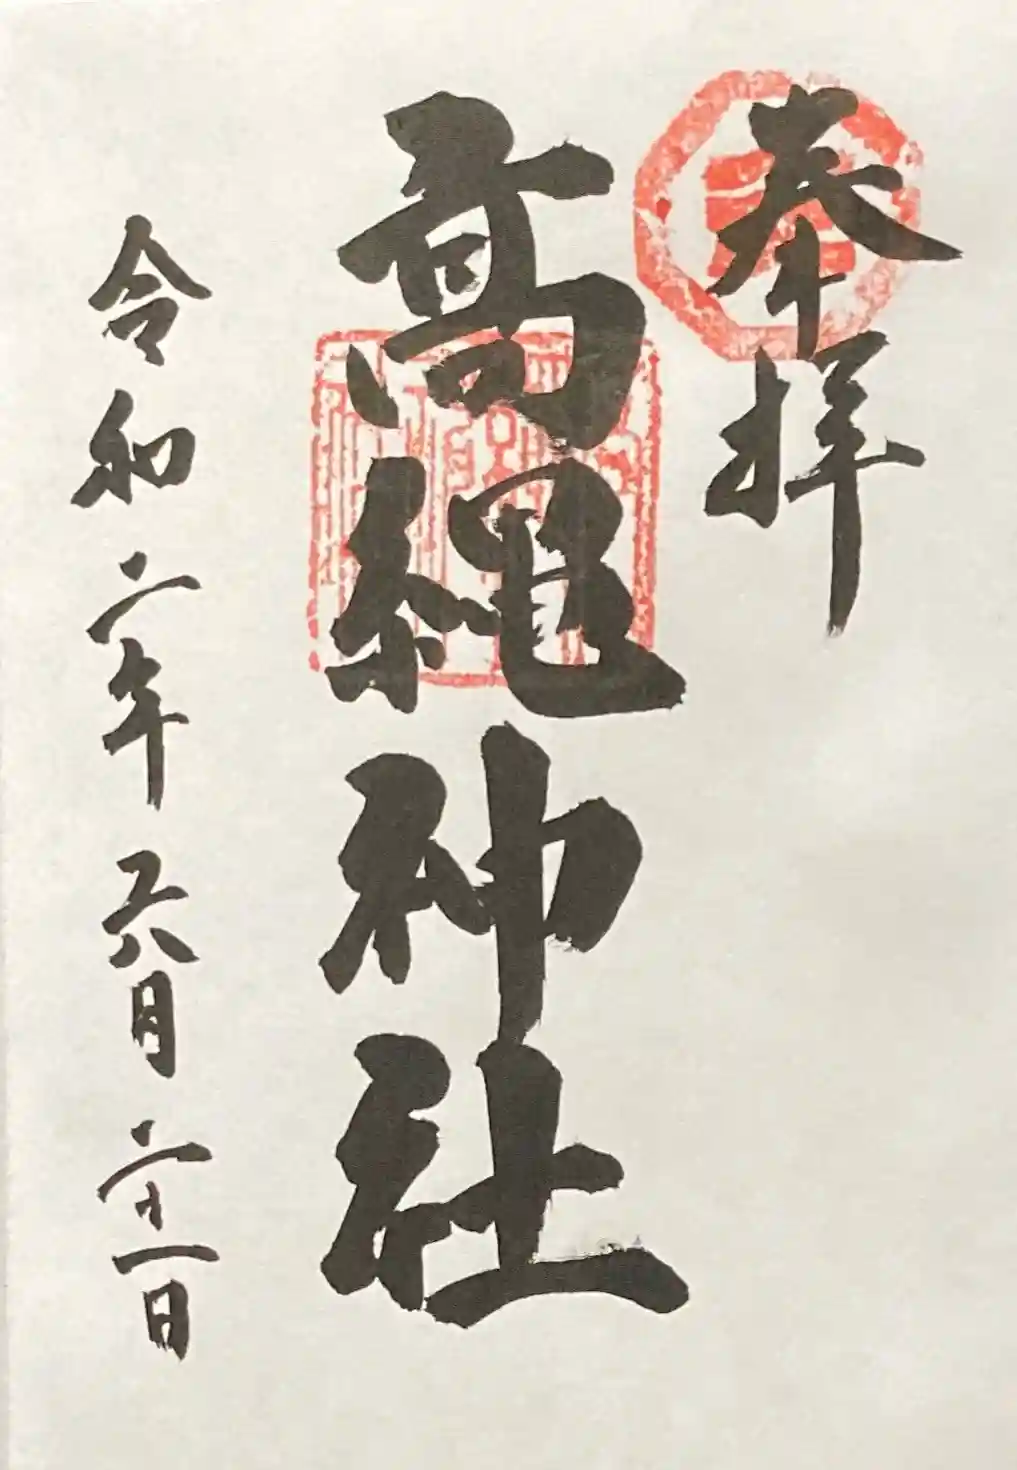 奉拝
高縄神社
令和二年六月二十一日